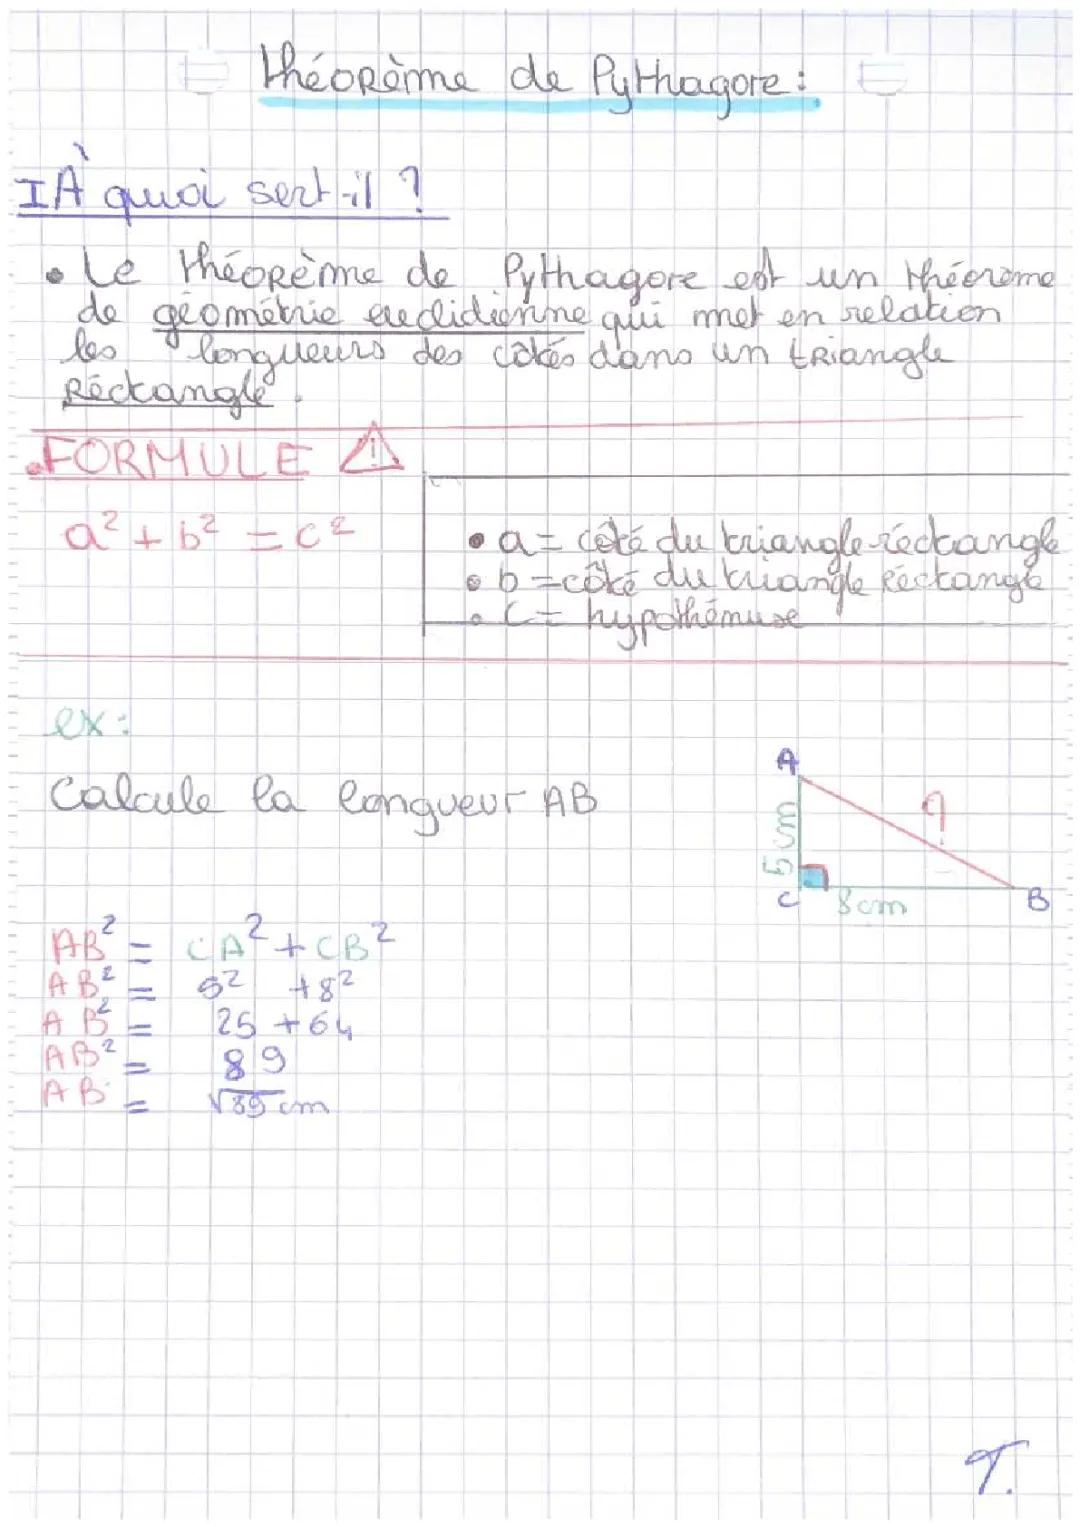 théorème de Pythagore :
I À quoi sert-il ?
• Le théorème de Pythagore est un théorème
de géométrie euclidienne qui met en relation
les longueurs des côtés dans un triangle
Réctangle.
•FORMULE ⚠
a² + b² = c²
• a = côté du triangle réctangle
• b = côté du triangle Réctangle
• C = hypothémuse
ex :
Calcule la longueur AB
A
5 cm
?
C
8 cm
B
AB² = CA² + CB²
AB² = 5² + 8²
AB² = 25 + 64
AB² = 89
AB = √89 cm
T.